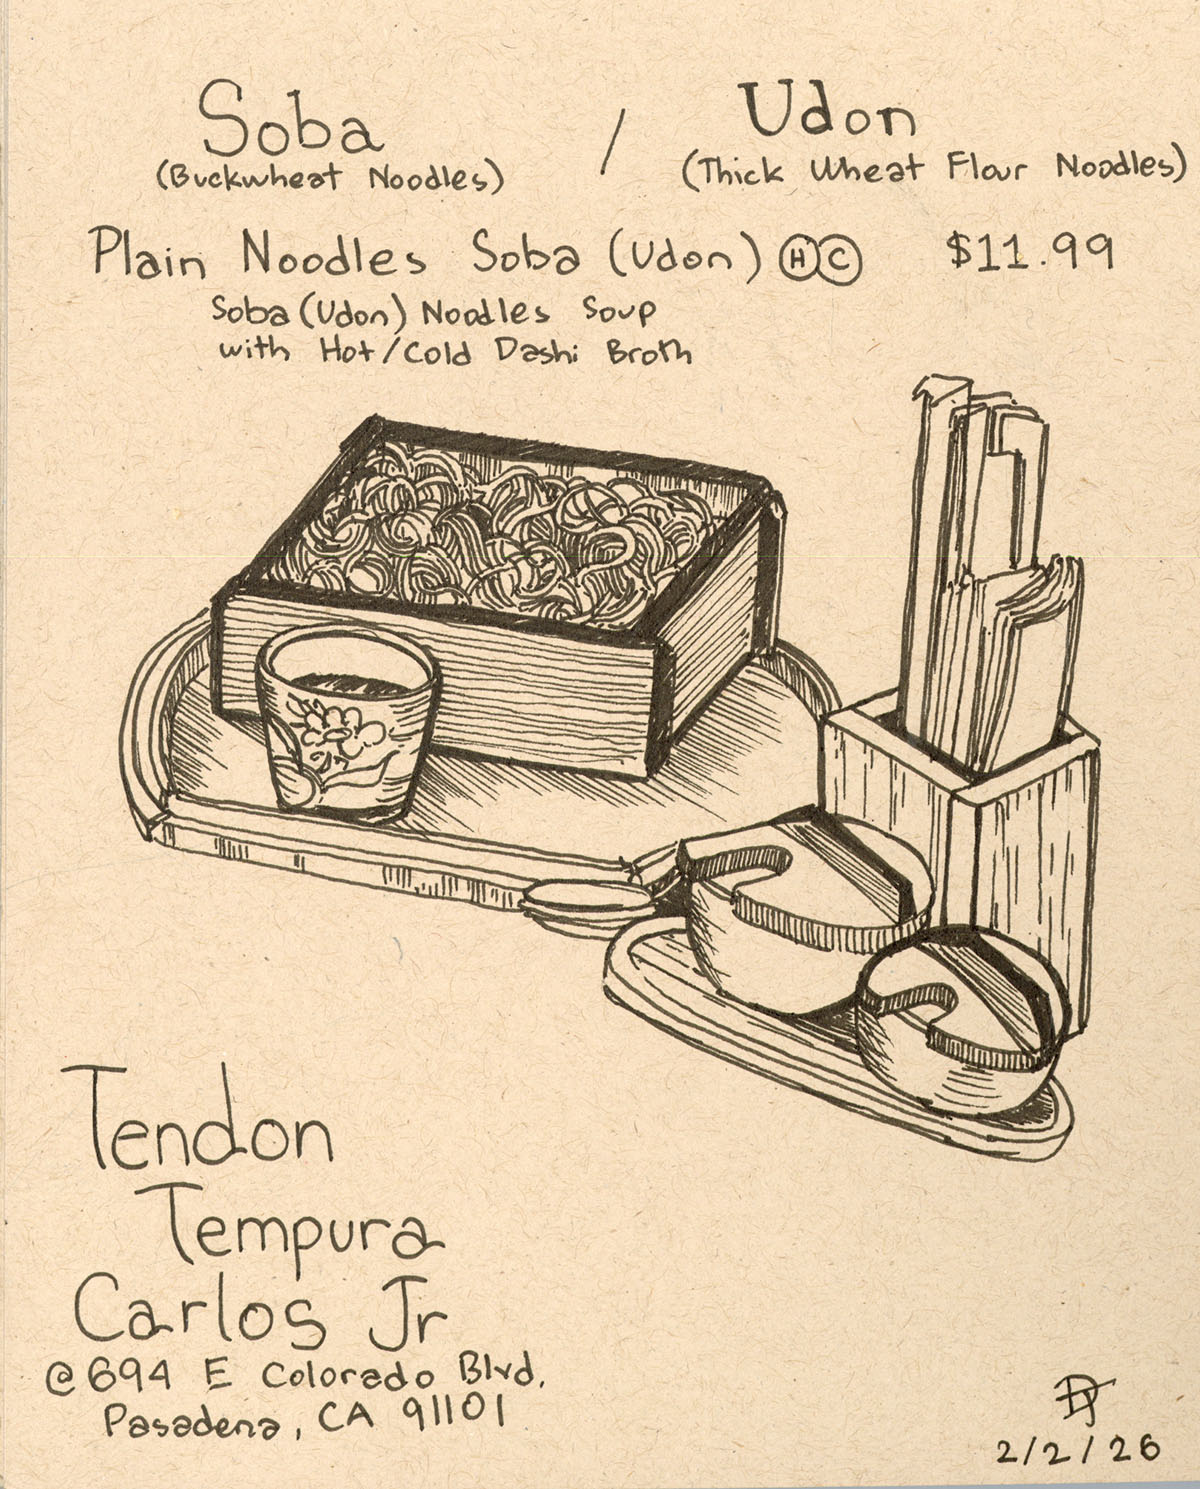 Soba / Udon
(Buckwheat Noodles) (Thick Wheat Flour Noodles)
Plain Noodles Soba (Udon) Ⓗ Ⓒ $11.99
Soba (Udon) Noodles Soup
with Hot/Cold Dashi Broth
Tendon
Tempura
Carlos Jr
@ 694 E Colorado Blvd.
Pasadena, CA 91101
2/2/26